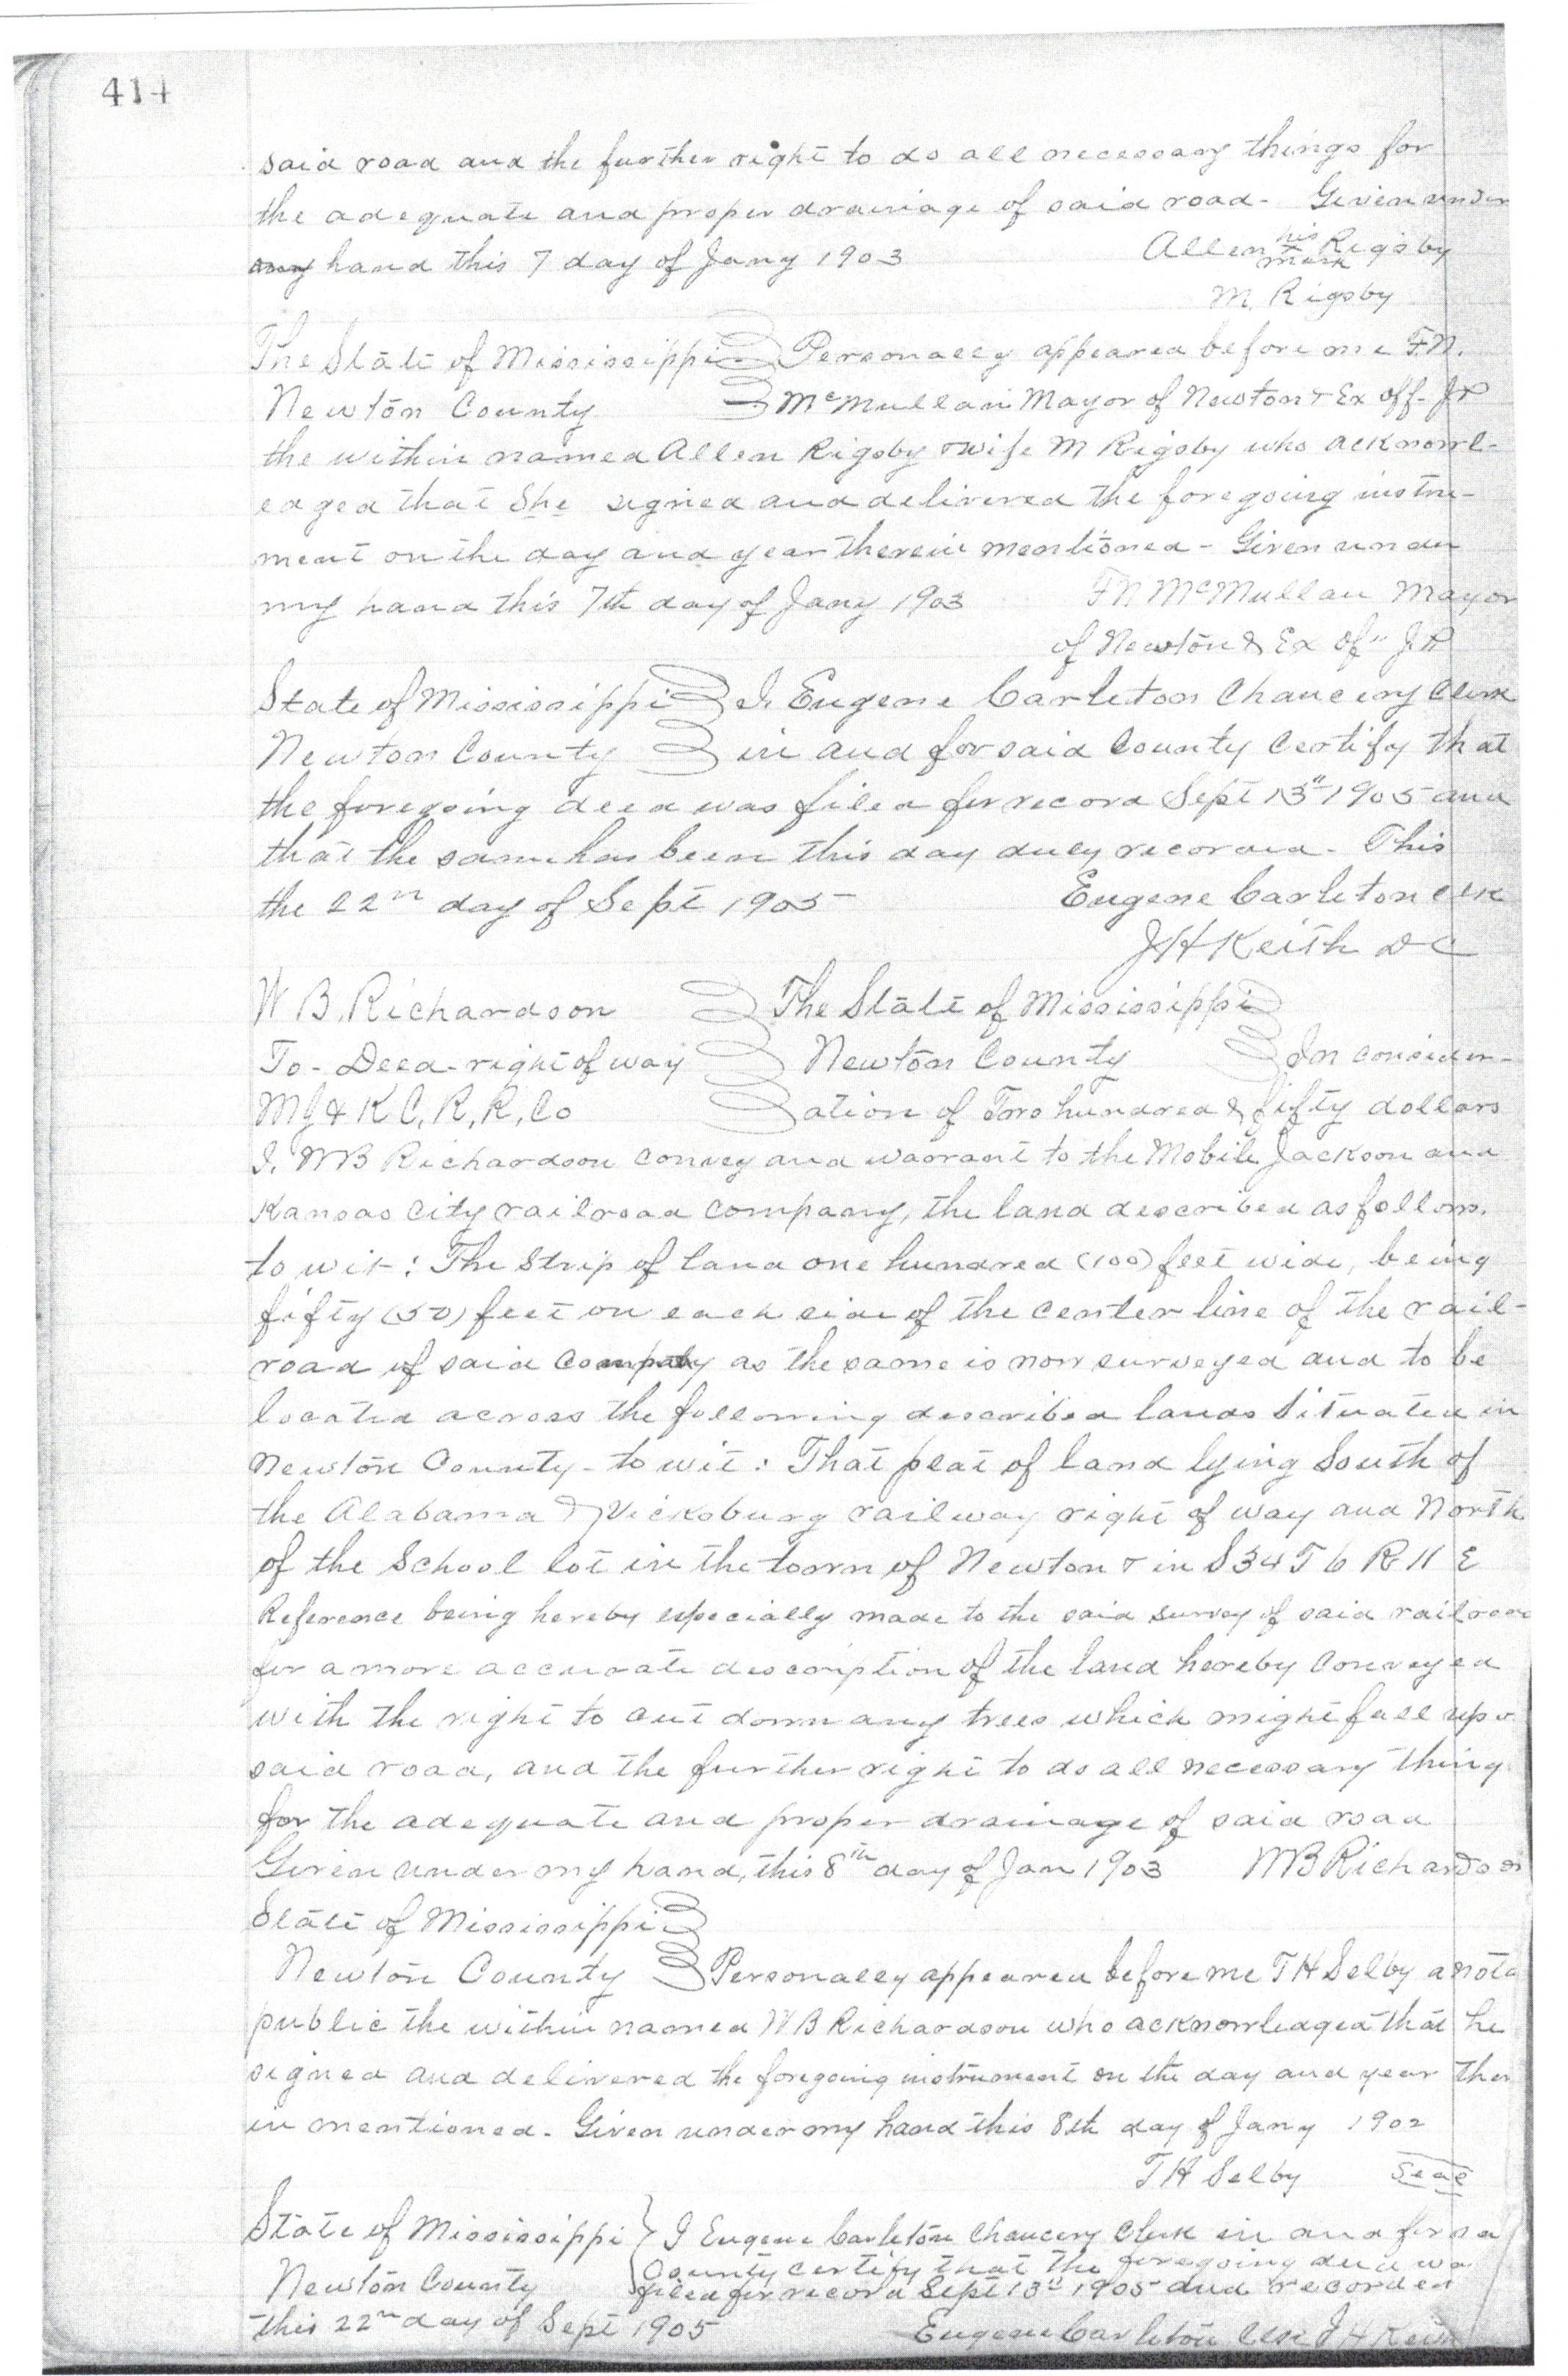 414
said road and the further right to do all necessary things for
the adequate and proper drainage of said road - Given under
my hand this 7 day of Jany 1903 Allen his x mark Rigsby
M. Rigsby
The State of Mississippi Personally appeared before me F.N.
Newton County McMullan Mayor of Newton & Ex off- JP
the within named Allen Rigsby & wife M Rigsby who acknowl-
edged that She signed and delivered the foregoing instru-
ment on the day and year therein mentioned - Given under
my hand this 7th day of Jany 1903 FN McMullan Mayor
of Newton & Ex Of" JP
State of Mississippi I, Eugene Carleton Chancery Clerk
Newton County in and for said County Certify that
the foregoing deed was filed for record Sept 13" 1905 and
that the same has been this day duly recorded - This
the 22nd day of Sept 1905 Eugene Carleton Clk
J H Keith DC
W B. Richardson The State of Mississippi
To - Deed - right of way Newton County In consider-
M J & K C, R, R, Co ation of Two hundred & fifty dollars
I, WB Richardson convey and warrant to the Mobile Jackson and
Kansas City railroad company, the land described as follows.
to wit: The Strip of land one hundred (100) feet wide, being
fifty (50) feet on each side of the center line of the rail-
road of said Company as the same is now surveyed and to be
located across the following described lands situated in
Newton County - to wit: That plat of land lying South of
the Alabama & Vicksburg railway right of way and North
of the School lot in the town of Newton & in S 34 T 6 R 11 E
Reference being hereby especially made to the said survey of said railroad
for a more accurate description of the land hereby conveyed
with the right to cut down any trees which might fall upo
said road, and the further right to do all necessary thing
for the adequate and proper drainage of said road
Given under my hand, this 8th day of Jan 1903 WB Richardson
State of Mississippi
Newton County Personally appeared before me T H Selby a nota
public the within named W B Richardson who acknowledged that he
signed and delivered the foregoing instrument on the day and year ther
in mentioned. Given under my hand this 8th day of Jany 1902
T H Selby Seal
State of Mississippi I Eugene Carleton Chancery Clerk in and for sa
County certify that the foregoing deed wa
Newton County filed for record Sept 13" 1905 and recorded
this 22nd day of Sept 1905 Eugene Carleton Clk J H Keith